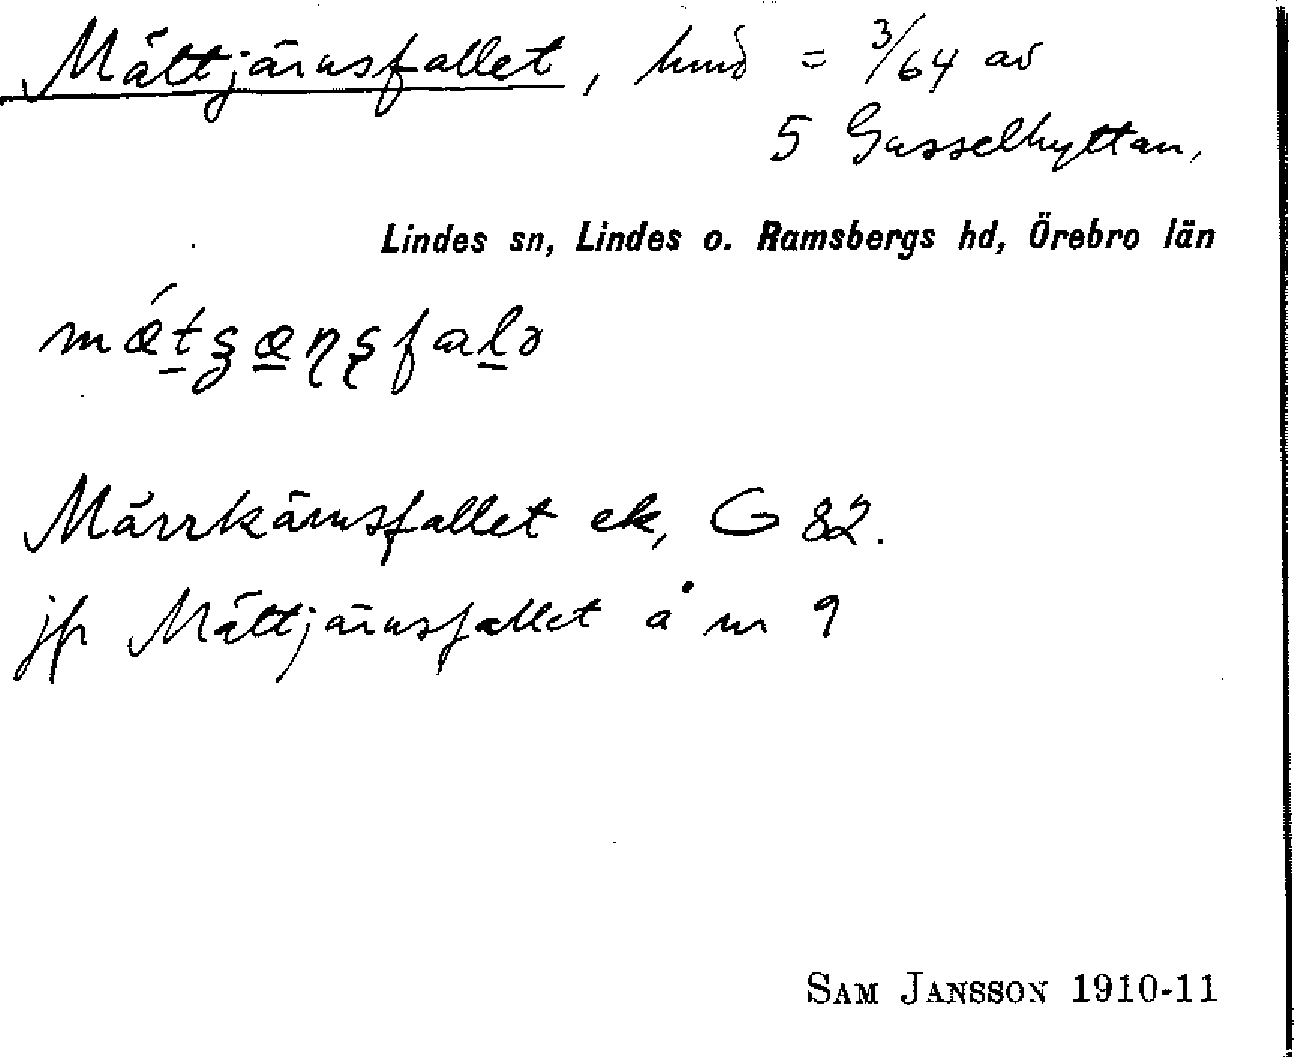 Mättjärnsfallet, hmd = 3/64 av
5 Gusselhyttan,
Lindes sn, Lindes o. Ramsbergs hd, Örebro län
Märrkärnsfallet ek, G 82.
jfr Mättjärnsfallet å nr 9
SAM JANSSON 1910-11